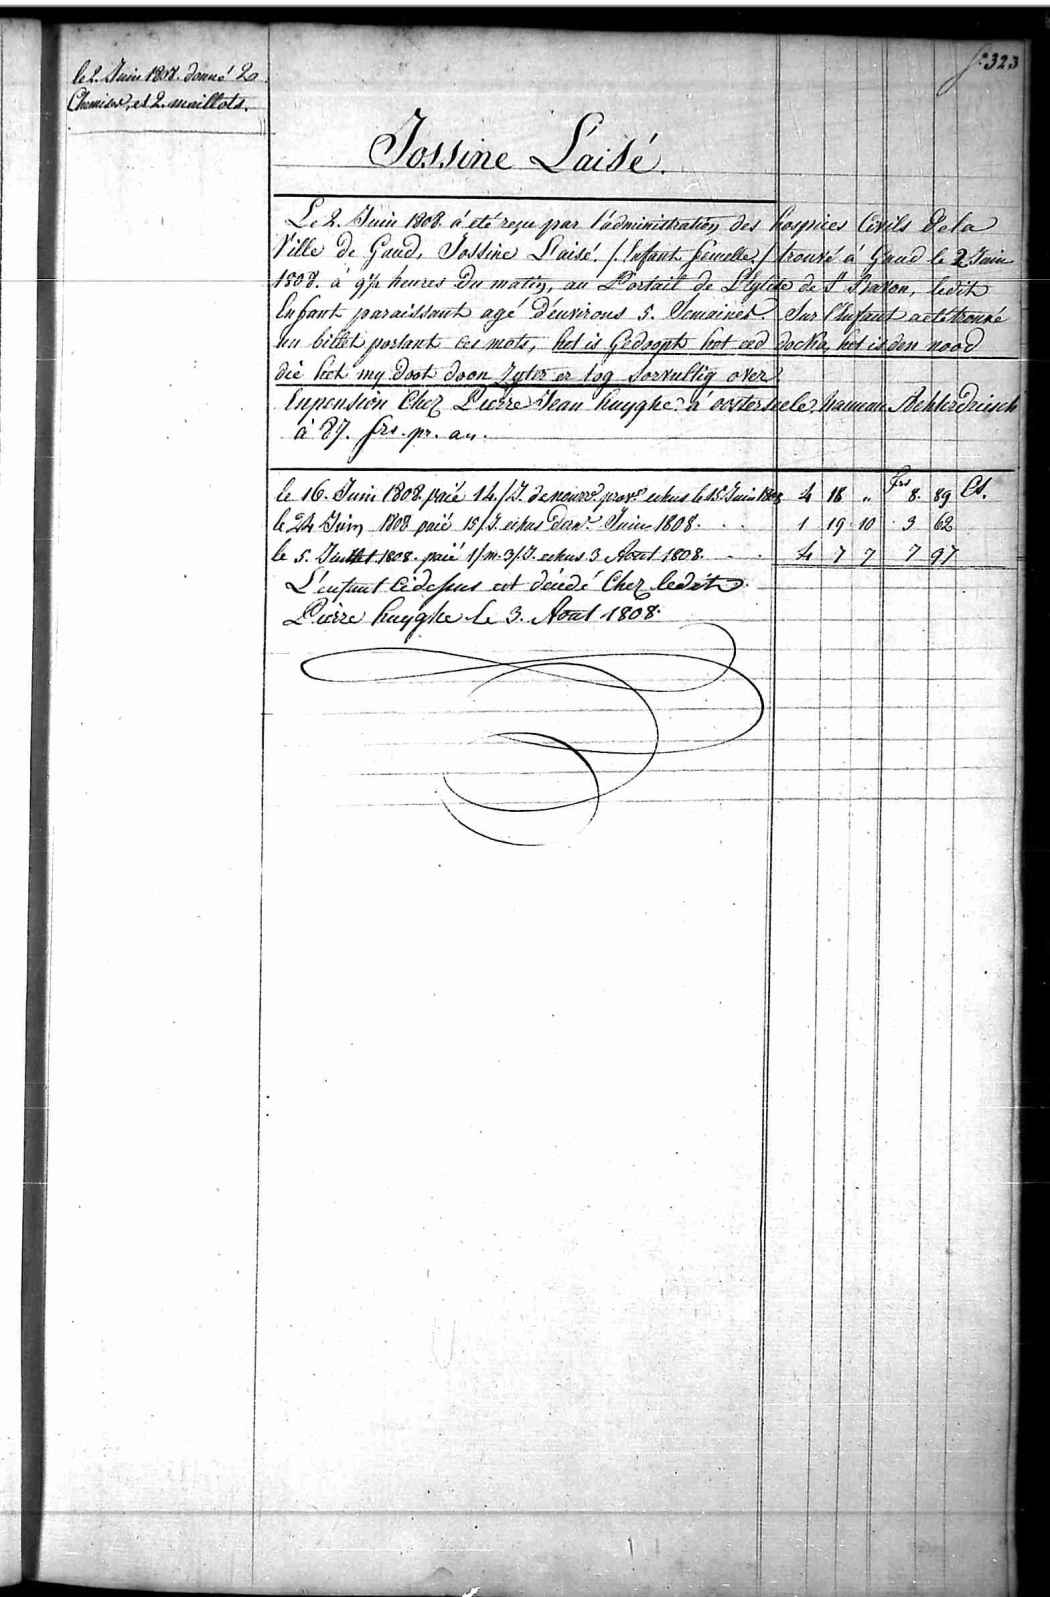 f° 323
le 2. Juin 1808. donné 2
Chemises, et 2. maillots.
Jossine L'aisé.
Le 2. Juin 1808. á été reçu par l'administration des hospices Civils de la
Ville de Gand, Jossine L'aisé. /. Enfant femelle / trouvé á Gand le 2 Juin
1808. á 9½ heures Du matin, au Portail de L'Eglise de St Bavon, ledit
Enfant paraissant agé d'environs 5. Semaines. Sur l'Enfant a été trouvé
un billet portant ces mots, het is Gedoopt het eed docka, het is den nood
die het my doot doen Zyter er tog sorvultig over
En pension Chez Pierre Jean huyghe á oosterzeele hameau Achterdriesch
á 87. frs. pr. an.
le 16. Juin 1808. paié 14./J. de nourre. prove. echus le 15 Juin 1808 4 18 „ frs 8. 89 Cs.
le 24 Juin 1808 paié 15/J. echus d'an. Juin 1808. 1 19 10 3 62
le 5. Juillet 1808. paié 1/m. 3/J. echus 3 Aout 1808. 4 7 7 7 97
L'enfant Cidessus est décédé Chez ledit
Pierre huyghe le 3. Aout 1808.